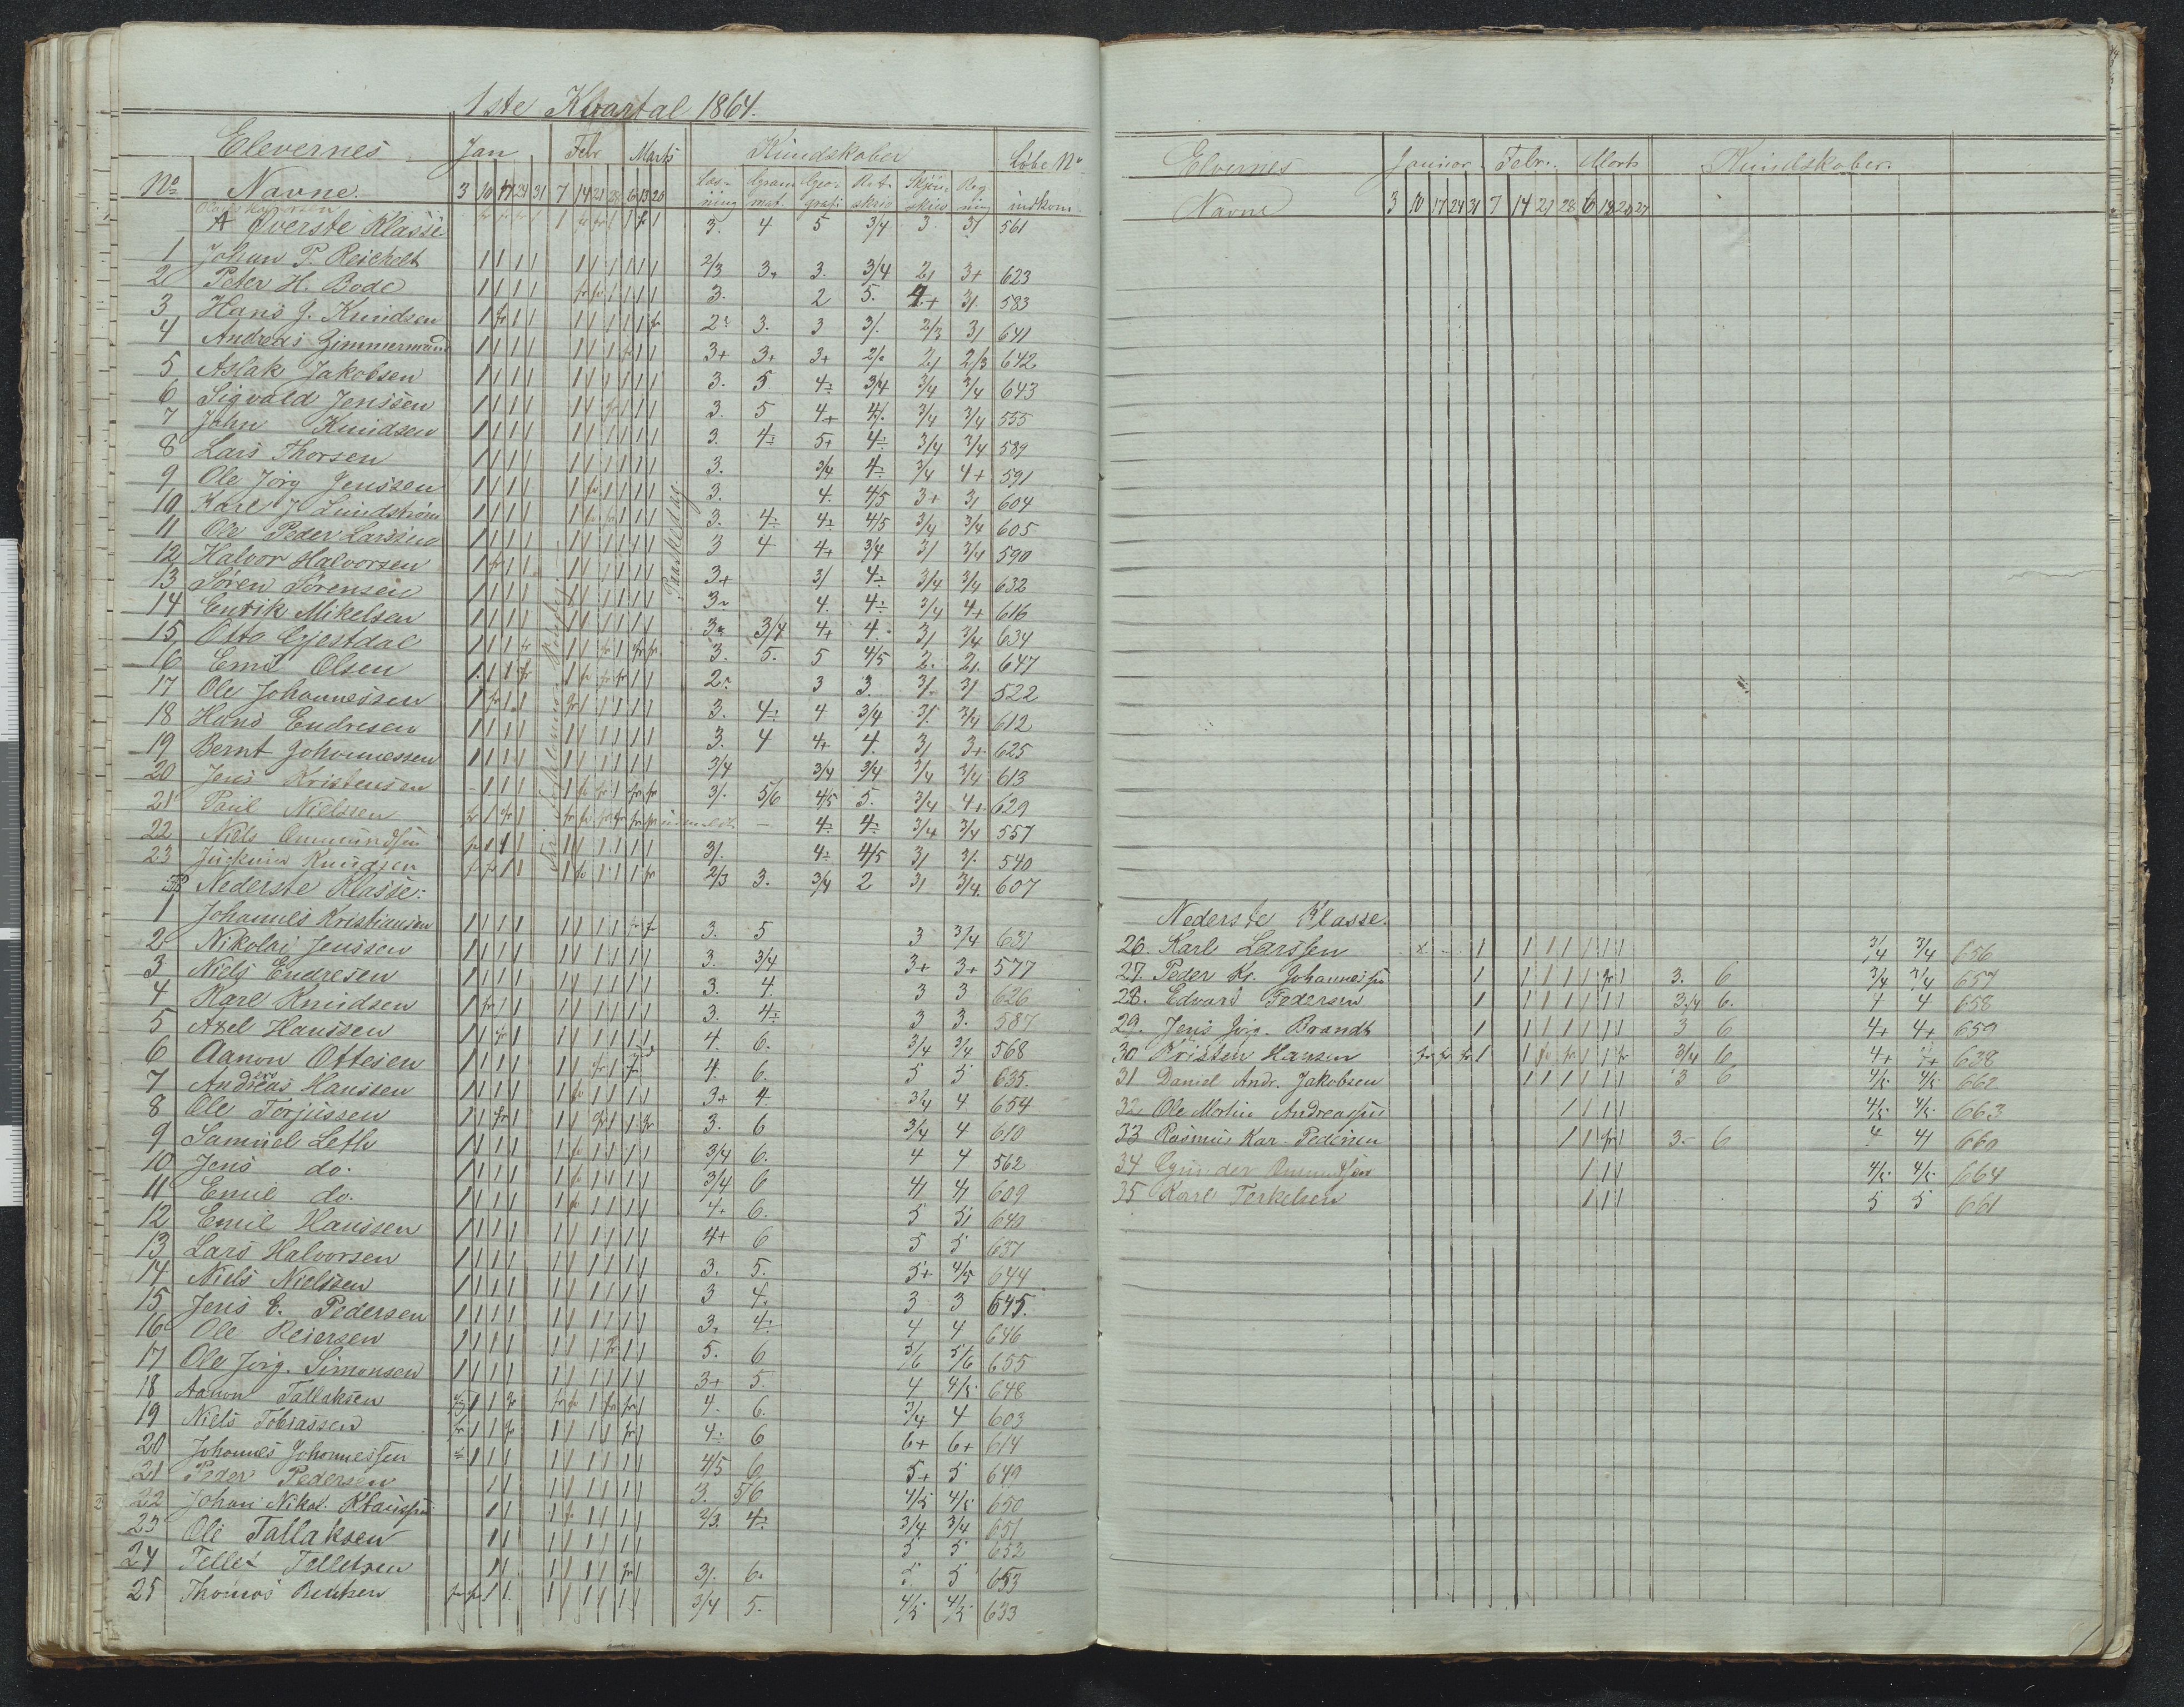 1ste Kvartal 1864.
Elevernes Jan Febr Marts Kundskaber Löbe No
No Navne. 3 10 17 24 31 7 14 21 28 6 13 20 Læs- ning Gram mat. Geo- grafi Ret- skriv Skjön- skriv Reg ning indkom.
A Överste Klasse 3. 4 5 3/4 3 3/ 561
1 Johan P. Reichelt 2/3 3+ 3. 3/4 2/ 3+ 623
2 Peter H. Bode 3. 2 5. 4+ 3/. 583
3 Hans J. Knudsen 2 3. 3 3/. 2/3 3/ 641
4 Andreas Zimmermann 3+ 3+ 3+ 2/. 2/ 2/3 642
5 Aslak Jakobsen 3. 5. 4÷ 3/4 3/4 3/4 643
6 Sigvald Jenssen 3. 5 4+ 4/. 3/4 3/4 555
7 John Knudsen 3. 4÷ 5+ 4÷ 3/4 3/4 589
8 Lars Thorsen 3. 3/4 4÷ 3/4 4+ 591
9 Ole Jörg Jenssen 3. 4. 4/5 3+ 3/ 604
10 Karl J Lundström 3. 4÷ 4÷ 4/5 3/4 3/4 605
11 Ole Peder Larssen 3 4 4+ 3/4 3/ 3/4 590
12 Halvor Halvorsen 3+ 3/ 4÷ 3/4 3/4 632
13 Sören Sörensen 3 4. 4÷ 3/4 4+ 616
14 Enrik Mikelsen 3 3/4 4+ 4. 3/ 3/4 634
15 Otto Gjestdal 3. 5. 5 4/5 2. 2/. 647
16 Emil Olsen 2 3 3. 3/. 3/ 522
17 Ole Johannessen 3. 4÷ 4 3/4 3/. 3/4 612
18 Hans Endresen 3. 4 4+ 4. 3/ 3+ 625
19 Bernt Johannessen 3/4 3/4 3/4 3/4 3/4 613
20 Jens Kristensen 3/. 5/6 4/5 5. 3/4 4+ 629
21 Paul Nielssen udmeldt — 4÷ 4÷ 3/4 3/4 557
22 Niels Ommundsen 3/. 4÷ 4/5 3/ 3/. 540
23 Knudsen 2/3 3. 3/4 2 3/ 3/4. 607
B Nederste Klasse:
1 Johannes Kristiansen 3. 5 3 3/4 631
2 Nikolai Jenssen 3. 3/4 3+ 3+ 577
3 Niels Endresen 3. 4. 3 3 626
4 Karl Knudsen 3. 4÷ 3 3. 587
5 Axel Hanssen 4. 6. 3/4 3/4 568
6 Aanon Ottesen 4. 6. 5 5 635.
7 Andreas Hanssen 3+ 4. 3/4 4 654
8 Ole Torjussen 3. 6 3/4 4 610
9 Samuel Leth 3/4 6. 4 4 562
10 Jens do. 3/4 6 4/ 4/ 609
11 Emil do. 4+ 6. 5 5/ 640
12 Emil Hanssen 4+ 6 5 5 637
13 Lars Halvorsen 3. 5. 5+ 4/5 644
14 Niels Nielssen 3 4. 3 3 645.
15 Jens E. Pedersen 3, 4÷ 4 4 646
16 Ole Reiersen 5. 6 5/6 5/6 655
17 Ole Jörg. Simonsen 3+ 5. 4 4/5 648
18 Aanon Tallaksen 4. 6. 3/4 4 603
19 Niels Tobiassen 4÷ 6 6+ 6+ 614
20 Johannes Johannessen 4/5 6 5+ 5 649
21 Peder Pedersen 3. 5/6 4/5 4/5 650
22 Johan Nikol. Klaussen 2/3. 4÷ 3/4 3/4 651
23 Ole Tallaksen 5 5 652
24 Tellef Tellefsen 3/. 6. 5 5 653
25 Thomas Bentsen 3/4 5. 4/5 4/5 633
Planteddag.
Elvernes Januar Febr. Marts Kundskaber.
Navne 3 10 17 24 31 7 14 21 28 6 13 20 27
Nederste Klasse.
26. Karl Larssen 3/4 3/4 656
27. Peder Kr. Johannessen 3. 6 3/4 3/4 657
28. Edvard Pedersen 3/4 6. 4 4 658
29. Jens Jörg. Brandt 3 6 4+ 4+ 659
30 Kristen Hansen 3/4 6 4+ 4+ 638
31 Daniel Andr. Jakobsen 3 6 4/5 4/5 662
32 Ole Martin Andreassen 4/5 4/5 663
33 Rasmus Kar. Pedersen 3. 6 4 4/ 660
34 Gunder Ommundsen 4/5 4/5 664
35 Karl Terkelsen 5 5 661